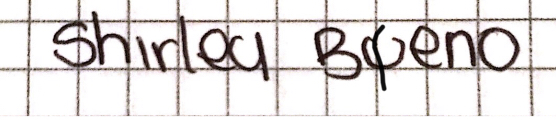 Shirley Bueno